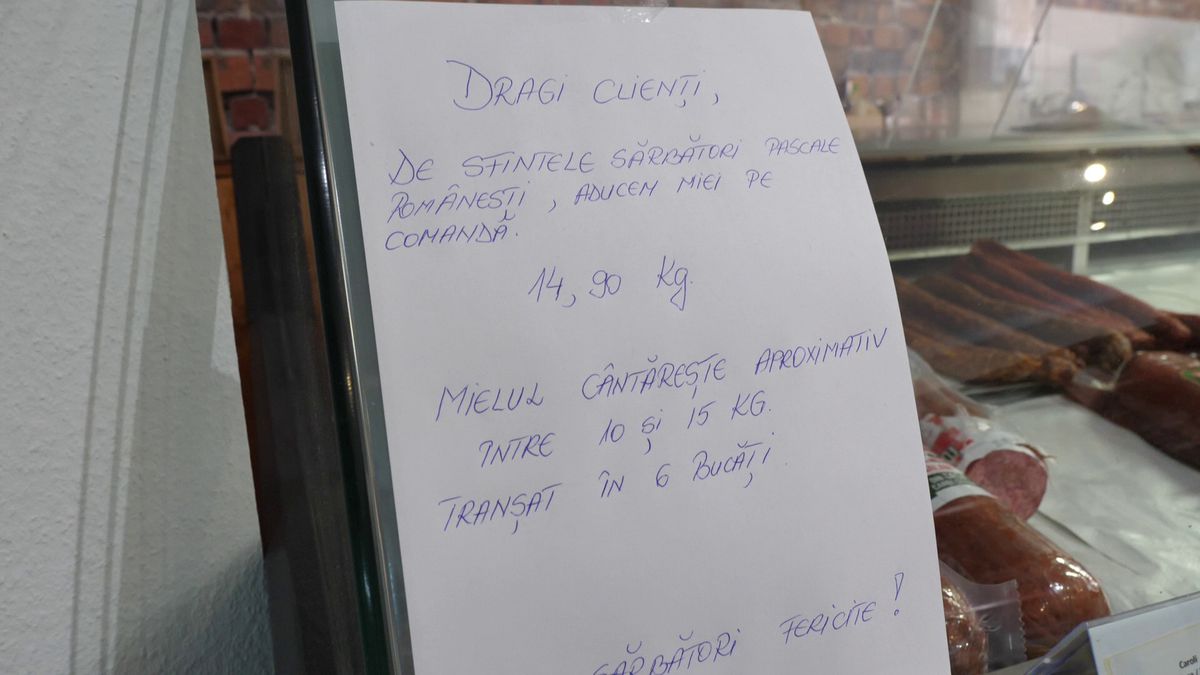 DRAGI CLIENȚI,
DE SFINTELE SĂRBĂTORI PASCALE
ROMÂNEȘTI, ADUCEM MIEI PE
COMANDĂ.
14,90 Kg.
MIELUL CÂNTĂREȘTE APROXIMATIV
ÎNTRE 10 și 15 KG.
TRANȘAT ÎN 6 BUCĂȚI.
SĂRBĂTORI FERICITE!
Caroli